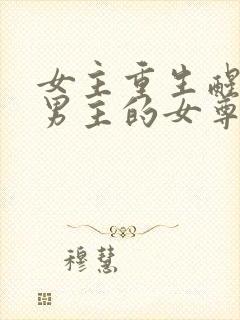 女主重生醒
男主的女尊
穆慧